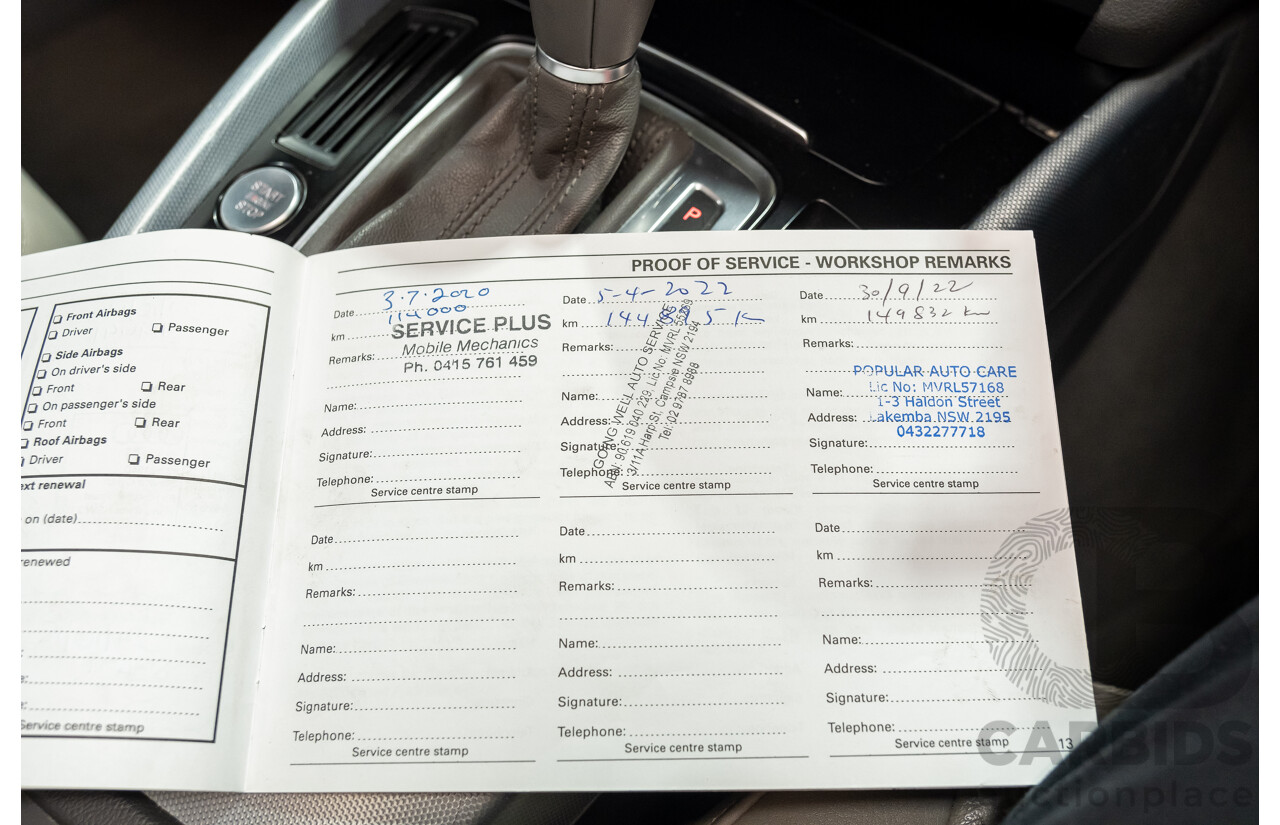 START
STOP
P
Front Airbags
Driver
Passenger
Side Airbags
On driver's side
Front
Rear
On passenger's side
Front
Rear
Roof Airbags
Driver
Passenger
ext renewal
on (date)
enewed
Service centre stamp
PROOF OF SERVICE - WORKSHOP REMARKS
Date 3.7.2020
km 114000
SERVICE PLUS
Mobile Mechanics
Remarks:
Ph. 0415 761 459
Name:
Address:
Signature:
Telephone:
Service centre stamp
Date 5-4-2022
km
Remarks:
Name:
Address:
Signature:
Telephone:
Service centre stamp
GOING WELL AUTO SERVICE
ABN: 90 619 040 229, Lic No: MVRL
3/11A Harp St, Campsie NSW 2194
Tel: 02 9787 8988
Date 30/9/22
km 149832 km
Remarks:
POPULAR AUTO CARE
Name: Lic No: MVRL57168
1-3 Haldon Street
Address: Lakemba NSW 2195
0432277718
Signature:
Telephone:
Service centre stamp
Date
km
Remarks:
Name:
Address:
Signature:
Telephone:
Service centre stamp
Date
km
Remarks:
Name:
Address:
Signature:
Telephone:
Service centre stamp
Date
km
Remarks:
Name:
Address:
Signature:
Telephone:
Service centre stamp
13
CARBIDS
auctionplace